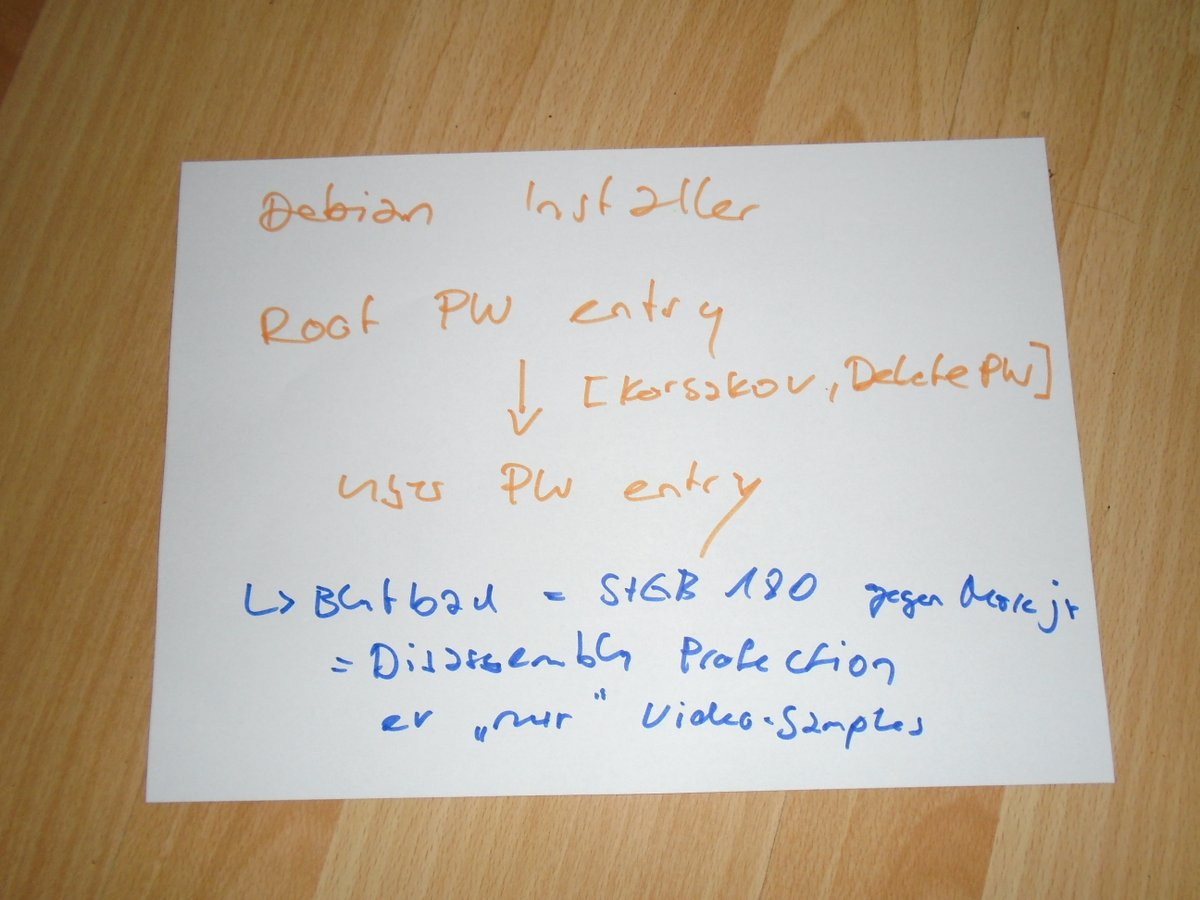 Debian Installer
Root PW entry
[Korsakov, DeletePW]
user PW entry
↳ Blutbad = StGB 180 gegen
= Disassembly Protection
er „nur“ Video-Samples